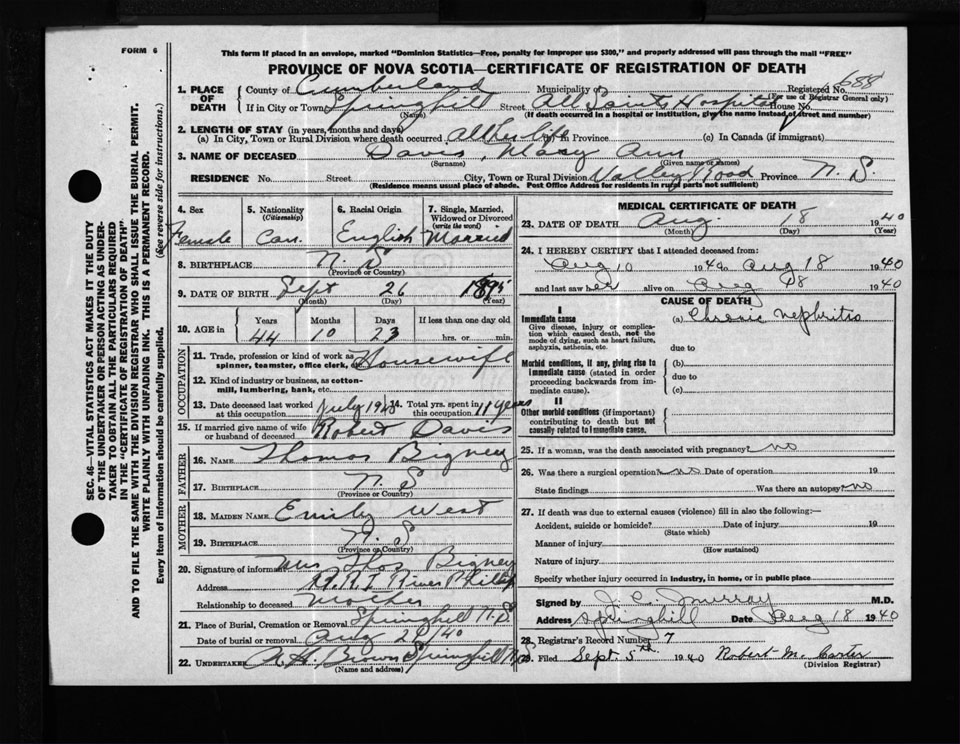 FORM 6
This form if placed in an envelope, marked "Dominion Statistics—Free, penalty for improper use $300," and properly addressed will pass through the mail "FREE"
PROVINCE OF NOVA SCOTIA—CERTIFICATE OF REGISTRATION OF DEATH
1. PLACE OF DEATH County of Cumberland Municipality of Registered No. 688
(For use of Registrar General only)
If in City or Town Springhill Street All Saints Hospital House No.
(Name) (If death occurred in a hospital or institution, give the name instead of street and number)
2. LENGTH OF STAY (in years, months and days)
(a) In City, Town or Rural Division where death occurred All her life (b) In Province (c) In Canada (if immigrant)
3. NAME OF DECEASED Davis, Mary Ann
(Surname) (Given name or names)
RESIDENCE No. Street City, Town or Rural Division Valley Road Province N. S.
(Residence means usual place of abode. Post Office Address for residents in rural parts not sufficient)
4. Sex Female
5. Nationality (Citizenship) Can.
6. Racial Origin English
7. Single, Married, Widowed or Divorced (write the word) Married
8. BIRTHPLACE N. S
(Province or Country)
9. DATE OF BIRTH Sept 26 1895
(Month) (Day) (Year)
10. AGE in Years Months Days If less than one day old
44 10 23 hrs. or min.
OCCUPATION
11. Trade, profession or kind of work as spinner, teamster, office clerk, etc. Housewife
12. Kind of industry or business, as cotton-mill, lumbering, bank, etc.
13. Date deceased last worked at this occupation July 19
14. Total yrs. spent in this occupation 11 years
15. If married give name of wife or husband of deceased Robert Davis
FATHER
16. NAME Thomas Bigney
17. BIRTHPLACE N. S
(Province or Country)
MOTHER
18. MAIDEN NAME Emily West
19. BIRTHPLACE N. S
(Province or Country)
20. Signature of informant Mrs Thos Bigney
Address River Philip
Relationship to deceased Mother
21. Place of Burial, Cremation or Removal Springhill N.S
Date of burial or removal Aug 20/40
22. UNDERTAKER Brown Springhill N.S
(Name and address)
MEDICAL CERTIFICATE OF DEATH
23. DATE OF DEATH Aug. 18 1940
(Month) (Day) (Year)
24. I HEREBY CERTIFY that I attended deceased from:
Aug 10 1940 to Aug 18 1940
and last saw her alive on Aug 18 1940
CAUSE OF DEATH
Immediate cause (a) Chronic nephritis
Give disease, injury or complication which caused death, not the mode of dying, such as heart failure, asphyxia, asthenia, etc.
due to
Morbid conditions, if any, giving rise to immediate cause (stated in order proceeding backwards from immediate cause).
(b)
due to
(c)
II
Other morbid conditions (if important) contributing to death but not causally related to immediate cause.
25. If a woman, was the death associated with pregnancy? no
26. Was there a surgical operation? no Date of operation 19
State findings Was there an autopsy? no
27. If death was due to external causes (violence) fill in also the following:—
Accident, suicide or homicide? Date of injury 19
(State which)
Manner of injury
(How sustained)
Nature of injury
Specify whether injury occurred in industry, in home, or in public place
Signed by J. C. Murray M.D.
Address Springhill Date Aug 18 1940
28. Registrar's Record Number 7
29. Filed Sept 5th 1940 Robert M. Carter
(Division Registrar)
SEC. 46—VITAL STATISTICS ACT MAKES IT THE DUTY
OF THE UNDERTAKER OR PERSON ACTING AS UNDER-
TAKER TO OBTAIN ALL THE PARTICULARS REQUIRED
IN THE "CERTIFICATE OF REGISTRATION OF DEATH"
AND TO FILE THE SAME WITH THE DIVISION REGISTRAR WHO SHALL ISSUE THE BURIAL PERMIT.
WRITE PLAINLY WITH UNFADING INK. THIS IS A PERMANENT RECORD.
Every item of information should be carefully supplied. (See reverse side for instructions.)